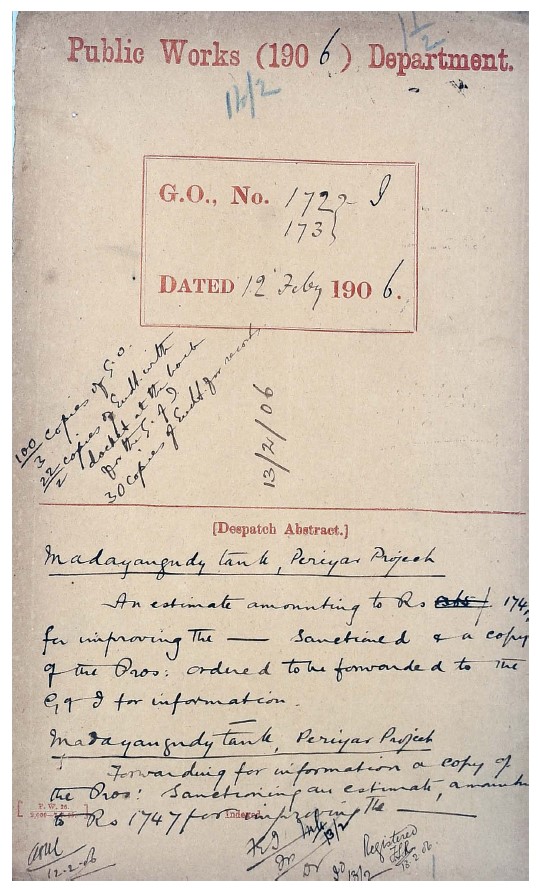 11/2
Public Works (1906) Department.
12/2
G.O., No. 1722- I
173
DATED 12 Feby 1906.
100 copies of G.O.
3
22 copies of Endt. with
2 docket at the back
for the G. of I
30 copies of Endt. for record
13/2/06
[Despatch Abstract.]
Madayangudy tank, Periyar Project
An estimate amounting to Rs 174
for improving the — Sanctioned & a copy
of the Pros: ordered to be forwarded to the
G of I for information.
Madayangudy tank, Periyar Project
Forwarding for information a copy of
the Pros: Sanctioning an estimate, amountg
to Rs 1747 for improving the —
[P. W. 26.
Indexed.
12-2-06
13/2
Registered
13/2
13.2.06.